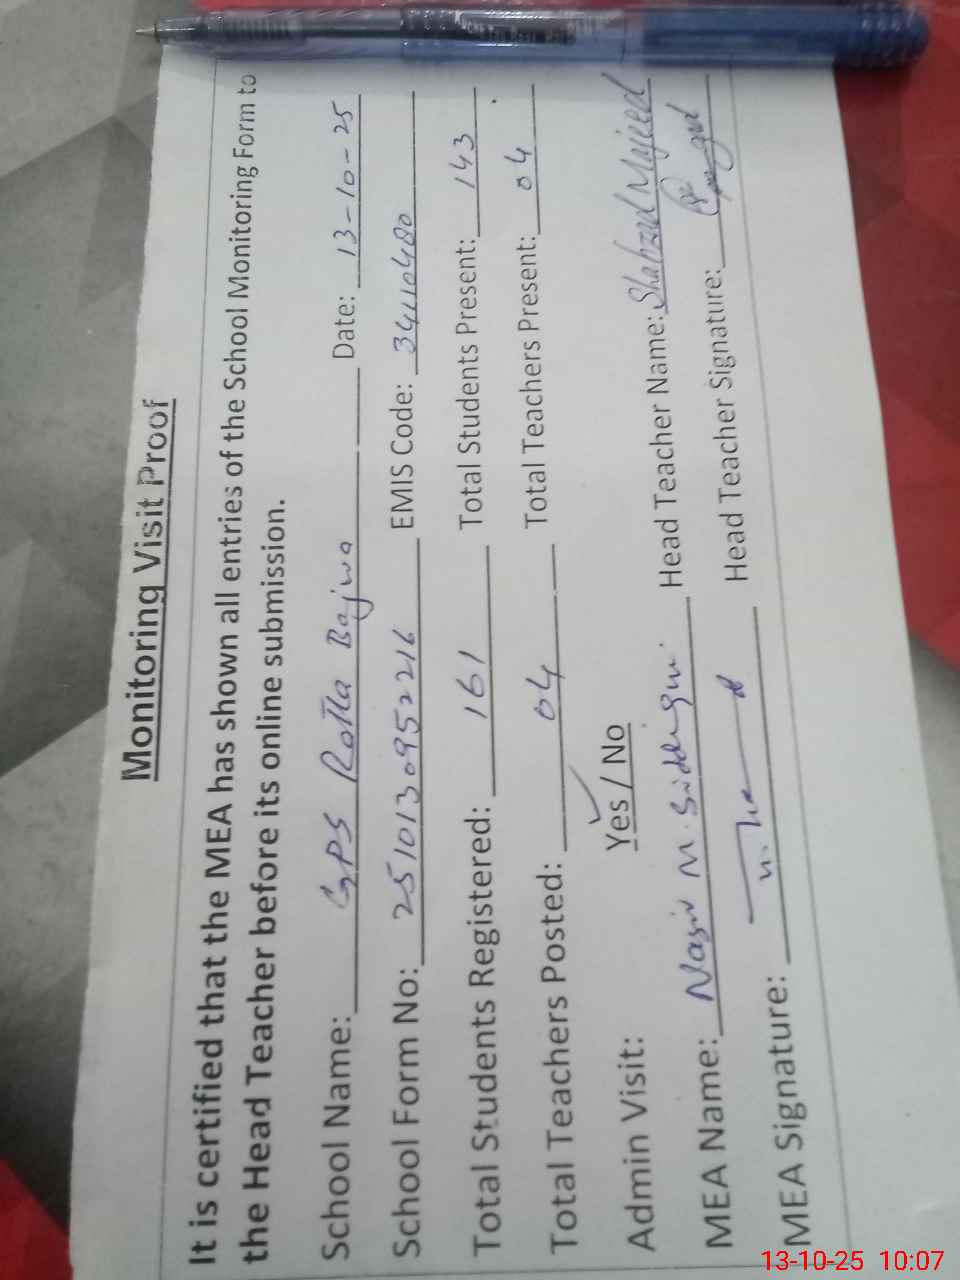 Monitoring Visit Proof
It is certified that the MEA has shown all entries of the School Monitoring Form to
the Head Teacher before its online submission.
School Name: GPS Rotla Bajwa Date: 13-10-25
School Form No: 2510130952216 EMIS Code: 34110480
Total Students Registered: 161 Total Students Present: 143
Total Teachers Posted: 04 Total Teachers Present: 04
Admin Visit: Yes / No
MEA Name: Nasir M. Siddiqui Head Teacher Name: Shahzad Majeed
MEA Signature: Head Teacher Signature:
13-10-25 10:07